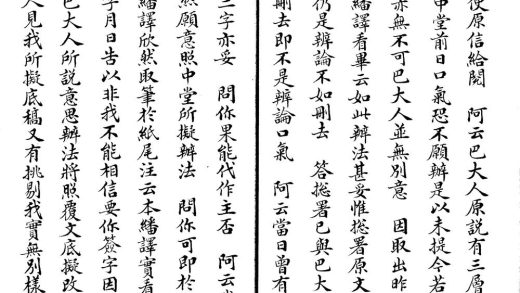 使原信給閱　阿云巴大人原說有三層
中堂前日口氣恐不願辦是以未提今若
亦無不可巴大人並無別意　因取出昨
繙譯看畢云如此辦法甚妥惟總署原文
仍是辨論不如刪去　答總署已與巴大
刪去即不是辨論口氣　阿云當日曾有
字亦妥　問你果能代作主否　阿云
然願意照中堂所擬辦法　問你可即於
繙譯欣然取筆於紙尾注云本繙譯實看
字月日告以非我不能相信要你簽字因
巴大人所說意思辦法將照覆文底擬改
人見我所擬底稿又有挑剔我實無別樣